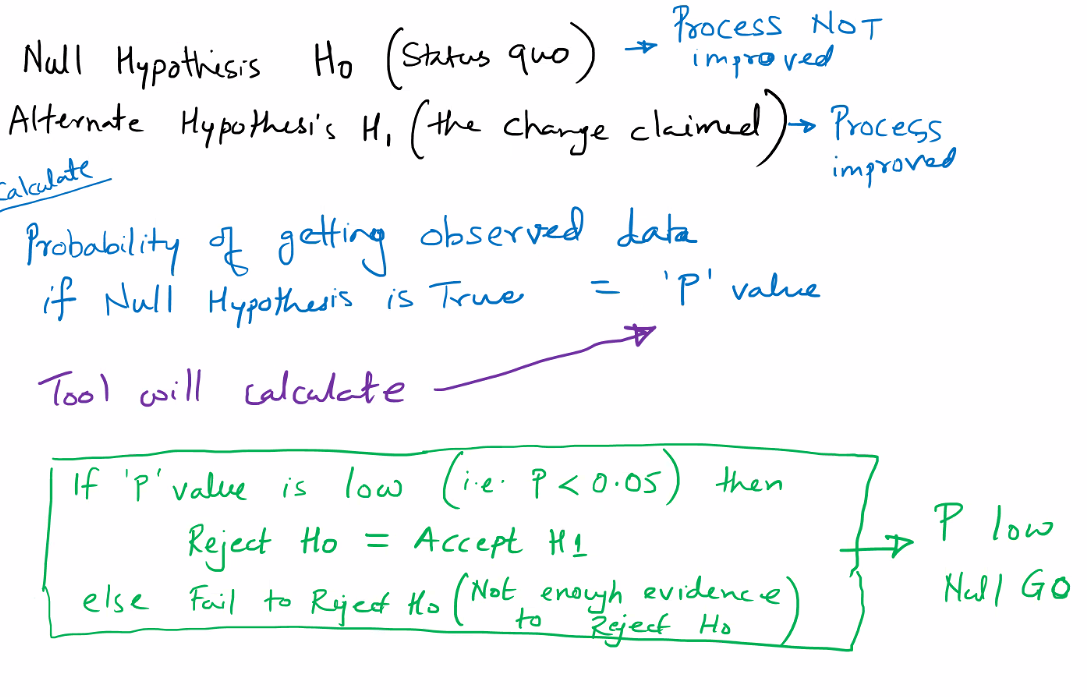 Null Hypothisis Ho (Status quo) → Process NOT improved
Alternate Hypothesis H1 (the change claimed) → Process improved
Calculate
Probability of getting observed data
if Null Hypothesis is True = 'P' value
Tool will calculate
If 'P' value is low (i.e. P < 0.05) then
Reject Ho = Accept H1
else Fail to Reject Ho (Not enough evidence
to Reject Ho)
→ P low
Null GO